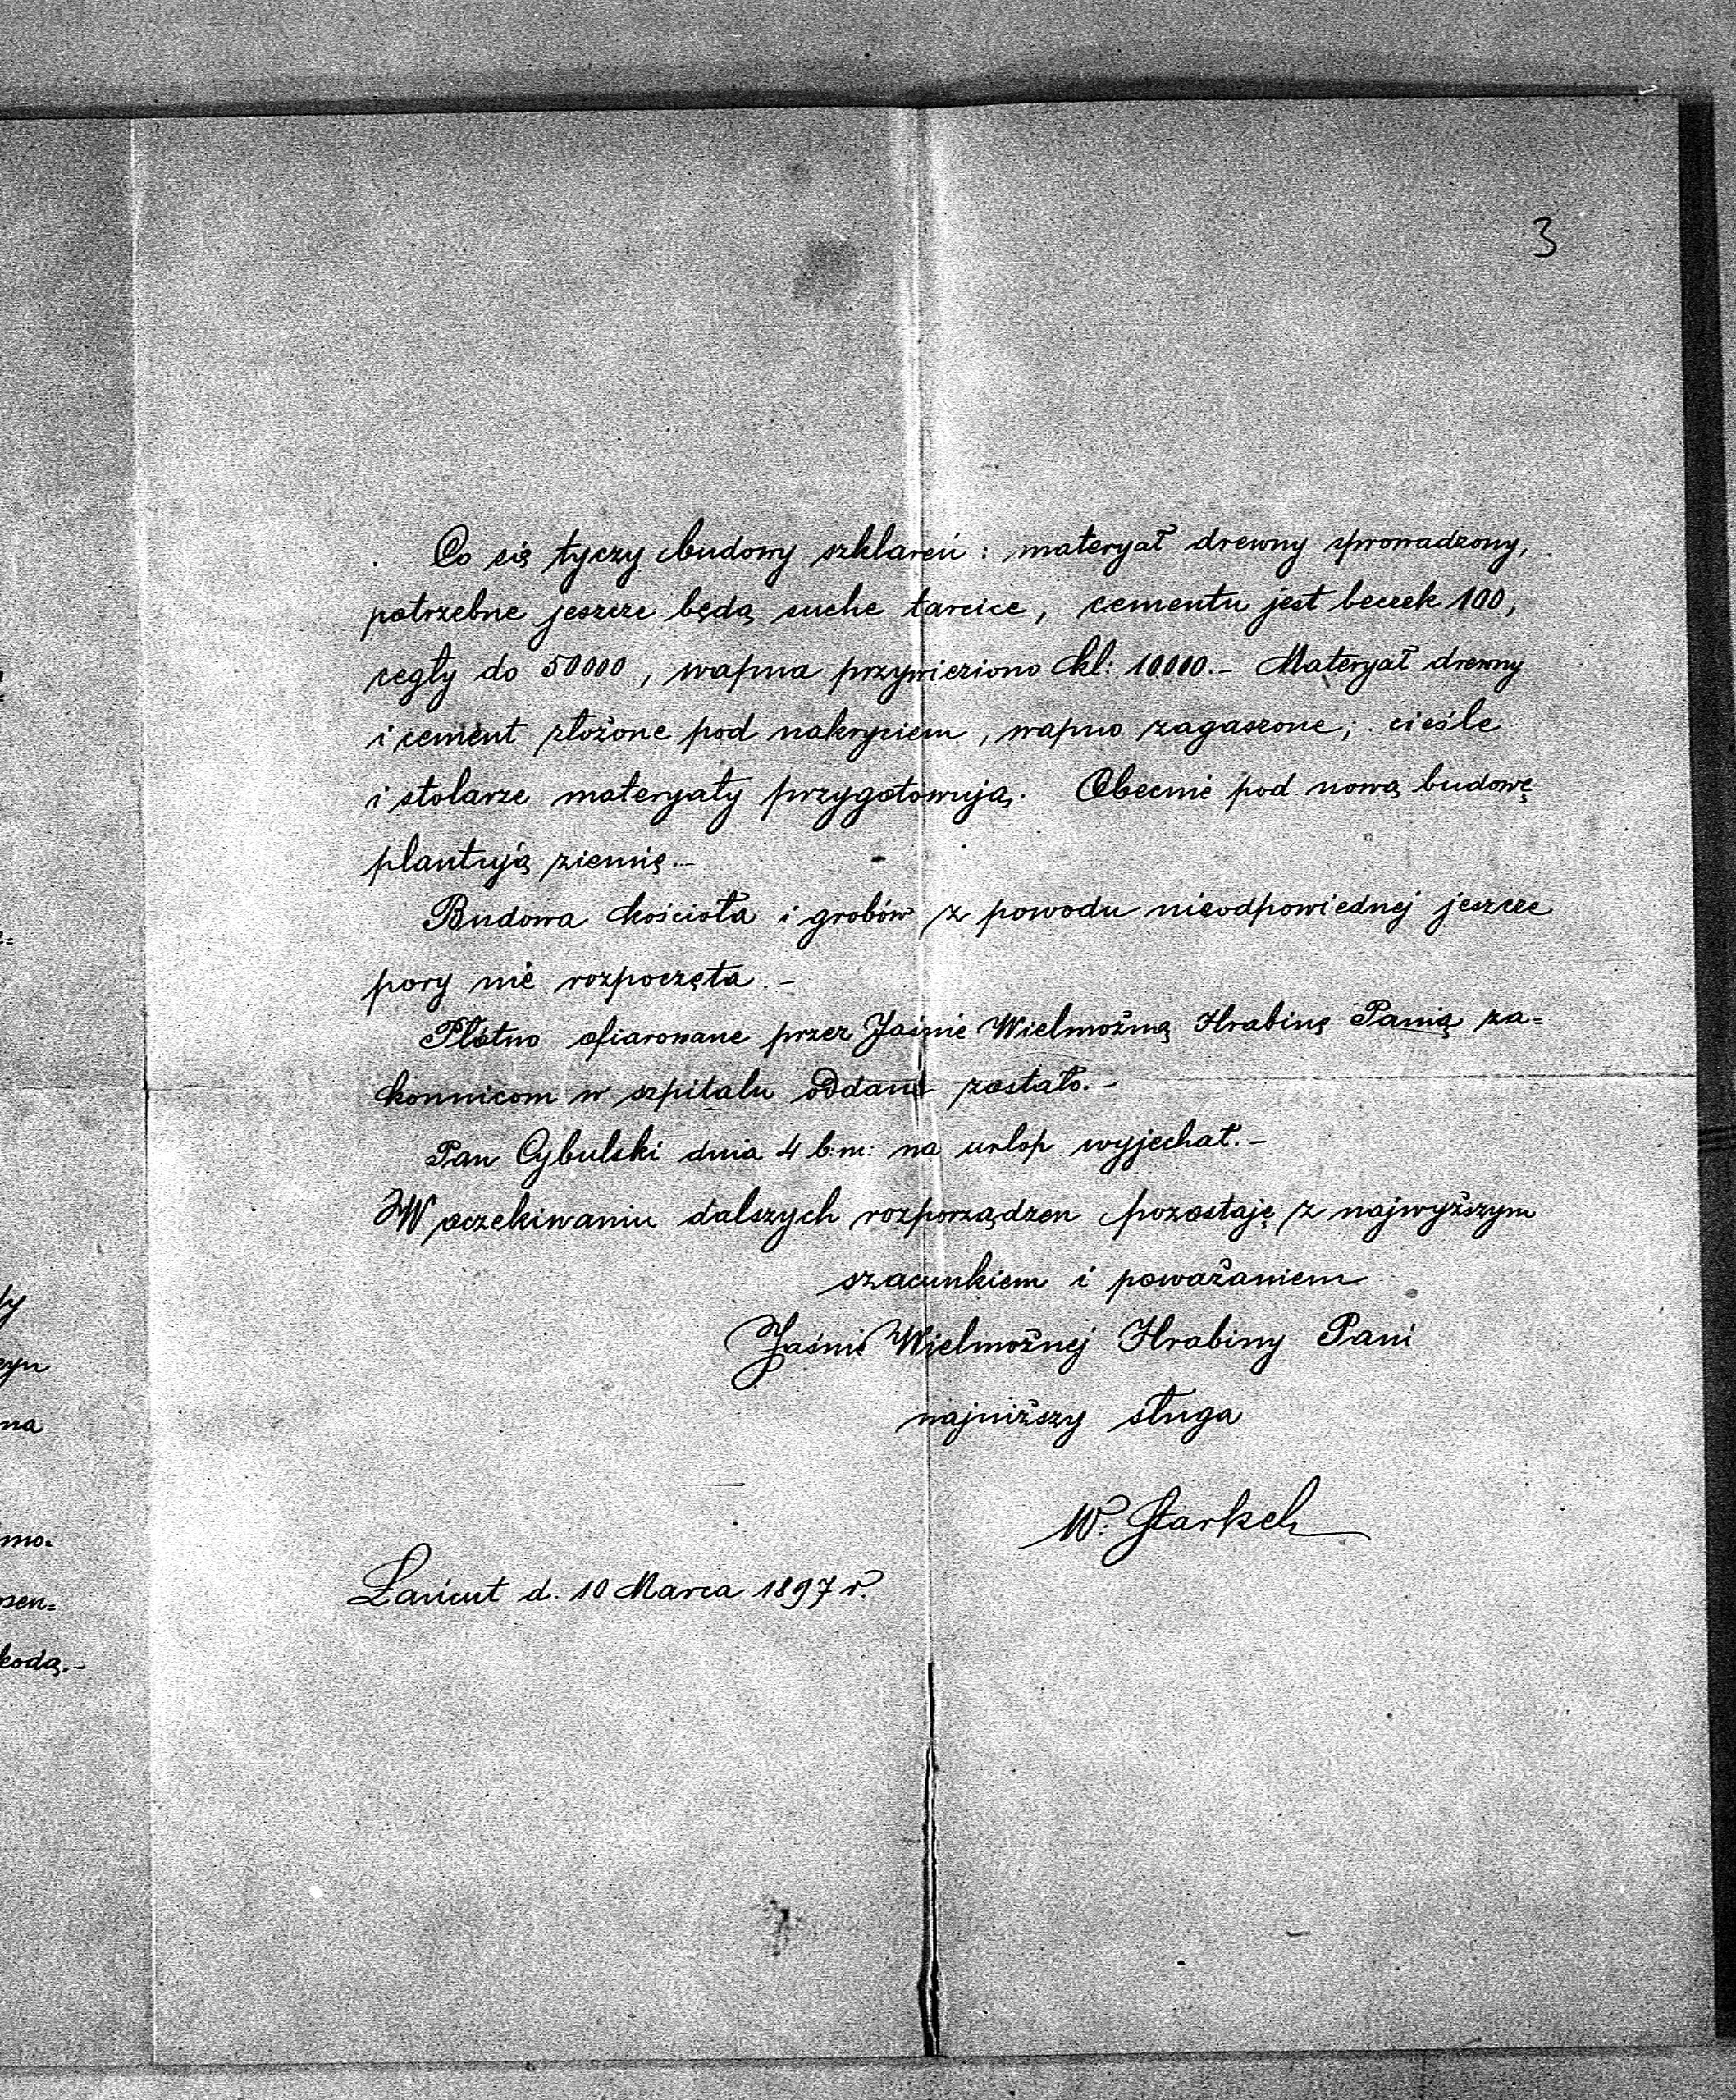 3
Co się tyczy budowy szklareń: materyał drewny sprowadzony,
potrzebne jeszcze będą suche tarcice, cementu jest beczek 100,
cegły do 50000, wapna przywieziono kl: 10000.- Materyał drewny
i cement złożone pod nakryciem, wapno zagaszone; cieśle
i stolarze materyały przygotowują. Obecnie pod nową budowę
plantują ziemię.-
Budowa kościoła i grobów z powodu nieodpowiednej jeszcze
pory nie rozpoczęta.-
Płótno ofiarowane przez Jaśnie Wielmożną Hrabinę Panią za=
konnicom w szpitalu oddane zostało.-
Pan Cybulski dnia 4 b:m: na urlop wyjechał.-
W oczekiwaniu dalszych rozporządzen pozostaję z najwyższym
szacunkiem i poważaniem
Jaśnie Wielmożnej Hrabiny Pani
najniższy sługa
W. Starkel
Łańcut d. 10 Marca 1897 r.